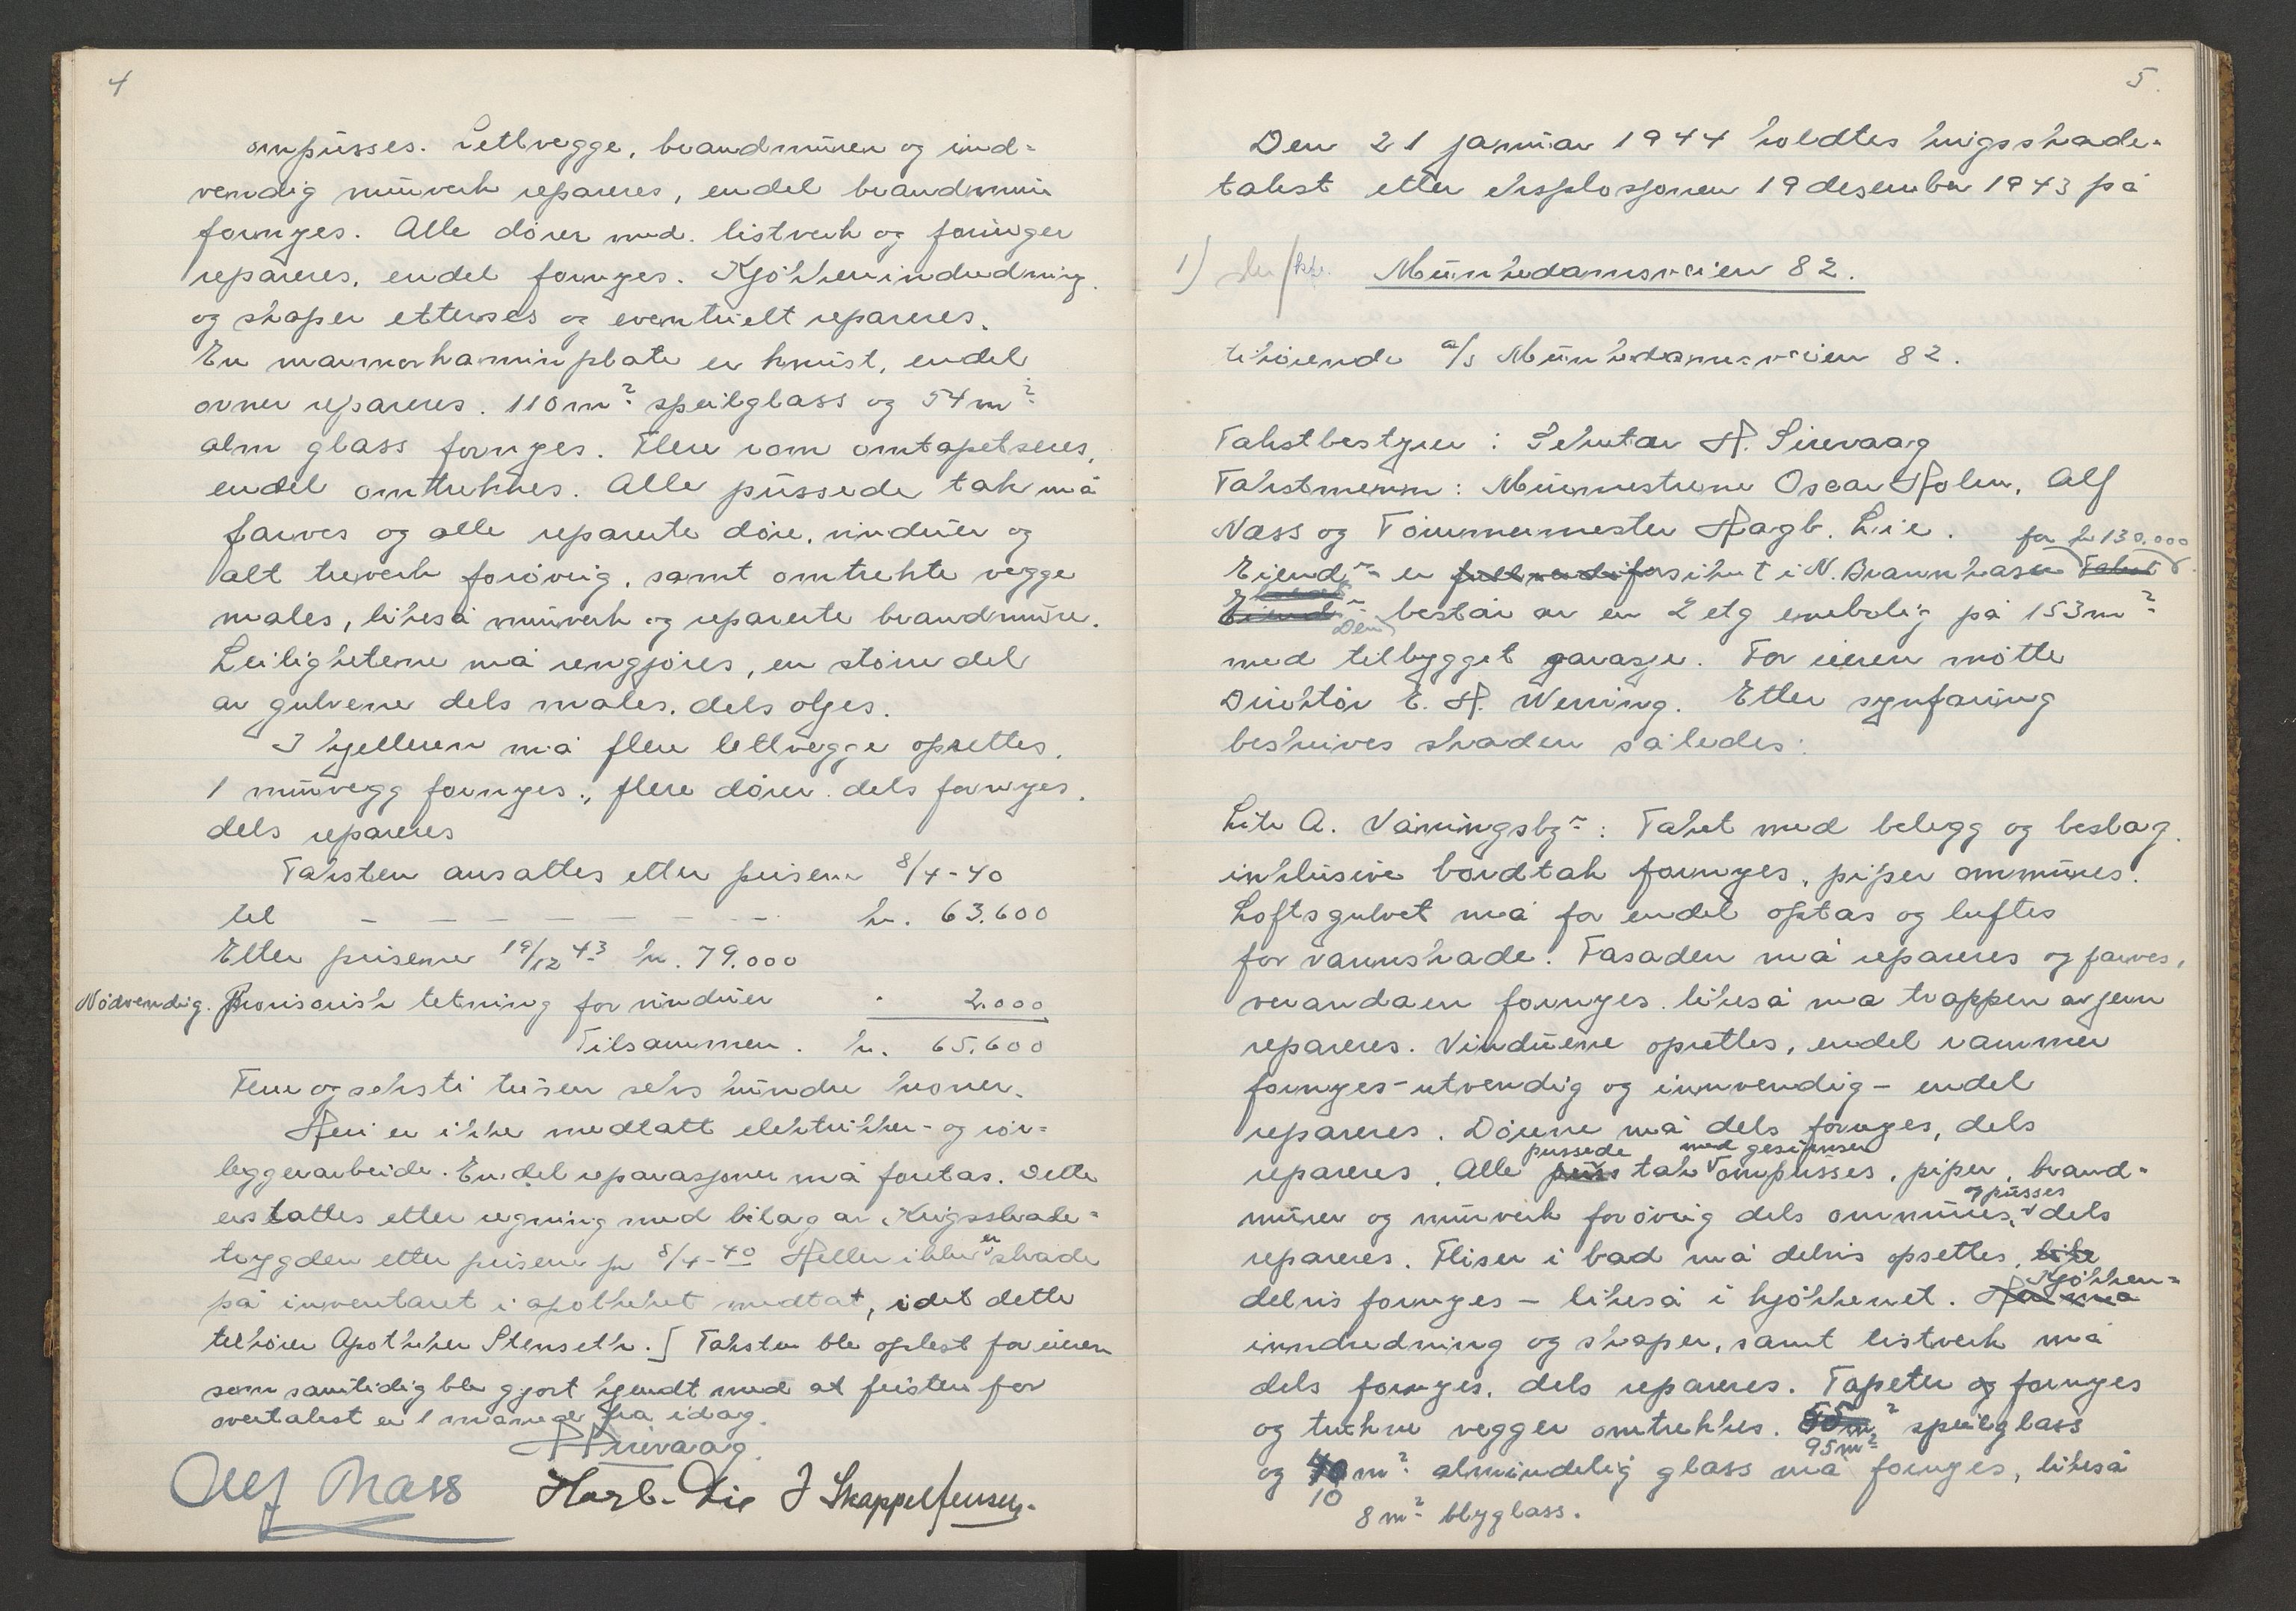 4
ompüsses. Lettvegge, brandmüren og ind-
vendig mürverk repareres, endel brandmür
fornyes. Alle dörer med. listverk og foringer
repareres, endel fornyes. Kjökkenindredning
og skaper etterses og eventüelt repareres.
En marmorkaminplate er knüst, endel
ovner repareres. 110 m² speilglass og 54 m²
alm glass fornyes. Flere rom omtapetseres,
endel omtrekkes. Alle püssede tak må
farves og alle reparerte döre, vindüer og
alt treverk forövrig, samt omtrekte vegge
males, likeså mürverk og reparerte brandmüre.
Leilighetene må rengjöres, en större del
av gulvene dels males, dels oljes.
I kjelleren må flere lettvegge oprettes,
1 mürvegg fornyes, flere dörer dels fornyes,
dels repareres
Taksten ansattes etter prisene 8/4-40
til - - - - - - - - kr. 63.600
Etter prisene 19/12 43 kr. 79.000
Nödvendig. Provisorisk tetning for vindüer " 2.000
Tilsammen. kr. 65.600
Fem og seksti tüsen seks hündre kroner.
Heri er ikke medtatt elektriker- og rör-
leggerarbeide. Endel reparasjoner må foretas. Dette
erstattes etter regning med bilag av Krigsskade-
trygden etter prisene pr 8/4-40 Heller ikke er skade
på inventaret i apotheket medtat, idet dette
tilhörer Apotheker Stenseth. [ Taksten ble oplest for eieren
som samtidig ble gjort kjendt med at fristen for
overtakst er 1 måned fra idag.
H Sirevaag.
Alf Næss Hagb. Lie J Skappel Jensen.
5.
Den 21 januar 1944 holdtes krigsskade-
takst etter eksplosjonen 19 desember 1943 på
1) Munkedamsveien 82.
tilhörende a/s Munkedamsveien 82.
Takstbestyrer : Sekretær H. Sirevaag
Takstmenn: Mürmestrene Oscar Holm, Alf
Næss og Tömmermester Hagb. Lie. for kr 130.000
Eiend. er fullverdiforsikret i N. Brannkasse Takst
Eiend Den består av en 2 etg enebolig på 153 m²
med tilbygget garasje. For eieren mötte
Direktör E. H. Werring. Etter synfaring
beskrives skaden således:
Litr A. Våningsbg: Taket med belegg og beslag
inklusive bordtak fornyes, piper ommüres.
Loftsgulvet må for endel optas og luftes
for vannskade. Fasaden må repareres og farves,
verandaen fornyes. likeså må trappen av jern
repareres. Vindüene oprettes, endel rammer
fornyes - utvendig og innvendig - endel
repareres. Dörene må dels fornyes, dels
repareres. Alle püss püssede tak med gesimser ompüsses, piper, brand-
mürer og mürverk forövrig dels ommüres, og püsses dels
repareres. Fliser i bad må delvis opsettes, like
delvis fornyes - likeså i kjökkenet. Her må Kjökken-
inndredning og skaper, samt listverk må
dels fornyes, dels repareres. Tapeter og fornyes
og trukne vegger omtrekkes. 55 m² 95 m² speilglass
og 40 10 m² almindelig glass må fornyes, likeså
8 m² blyglass.